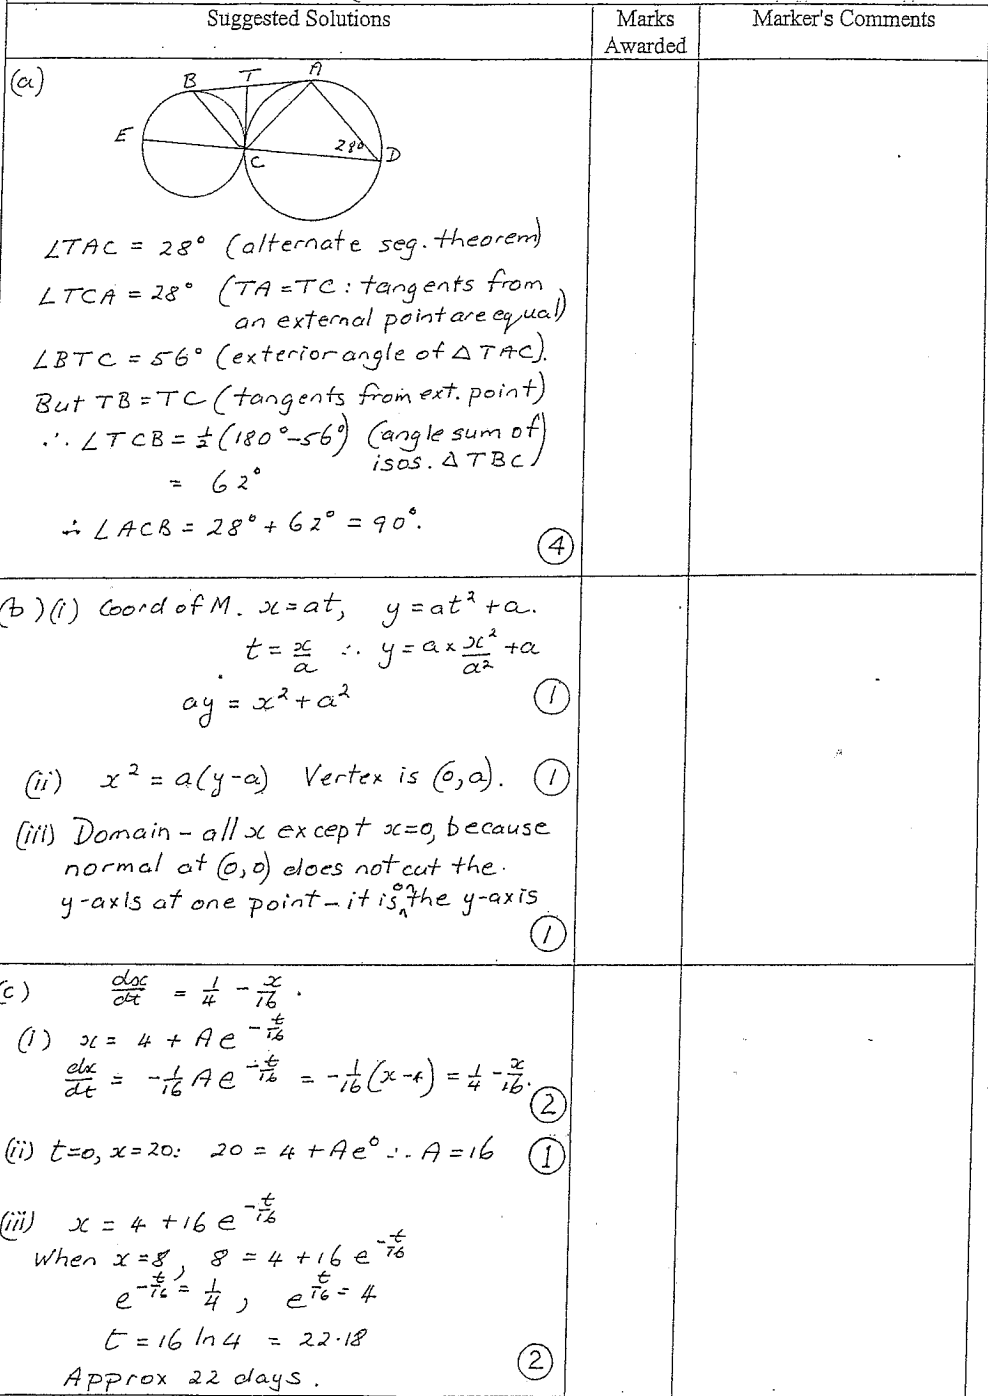 Suggested Solutions
Marks Awarded
Marker's Comments
(a)
B T A
E
28°
D
C
∠TAC = 28° (alternate seg. theorem)
∠TCA = 28° (TA = TC : tangents from
an external point are equal)
∠BTC = 56° (exterior angle of △TAC).
But TB = TC (tangents from ext. point)
∴ ∠TCB = ½(180° - 56°) (angle sum of
isos. △TBC)
= 62°
∴ ∠ACB = 28° + 62° = 90°.
④
(b)(i) Coord of M. x = at, y = at² + a.
t = x/a ∴ y = a × x²/a² + a
ay = x² + a²
①
(ii) x² = a(y-a) Vertex is (0,a). ①
(iii) Domain - all x except x=0, because
normal at (0,0) does not cut the
y-axis at one point - it is on the y-axis
①
(c) dx/dt = 1/4 - x/16 .
(i) x = 4 + Ae^(-t/16)
dx/dt = -1/16 Ae^(-t/16) = -1/16(x-4) = 1/4 - x/16.
②
(ii) t=0, x=20: 20 = 4 + Ae⁰ ∴ A = 16 ①
(iii) x = 4 + 16 e^(-t/16)
When x = 8, 8 = 4 + 16 e^(-t/16)
e^(-t/16) = 1/4 , e^(t/16) = 4
t = 16 ln 4 = 22.18
②
Approx 22 days.